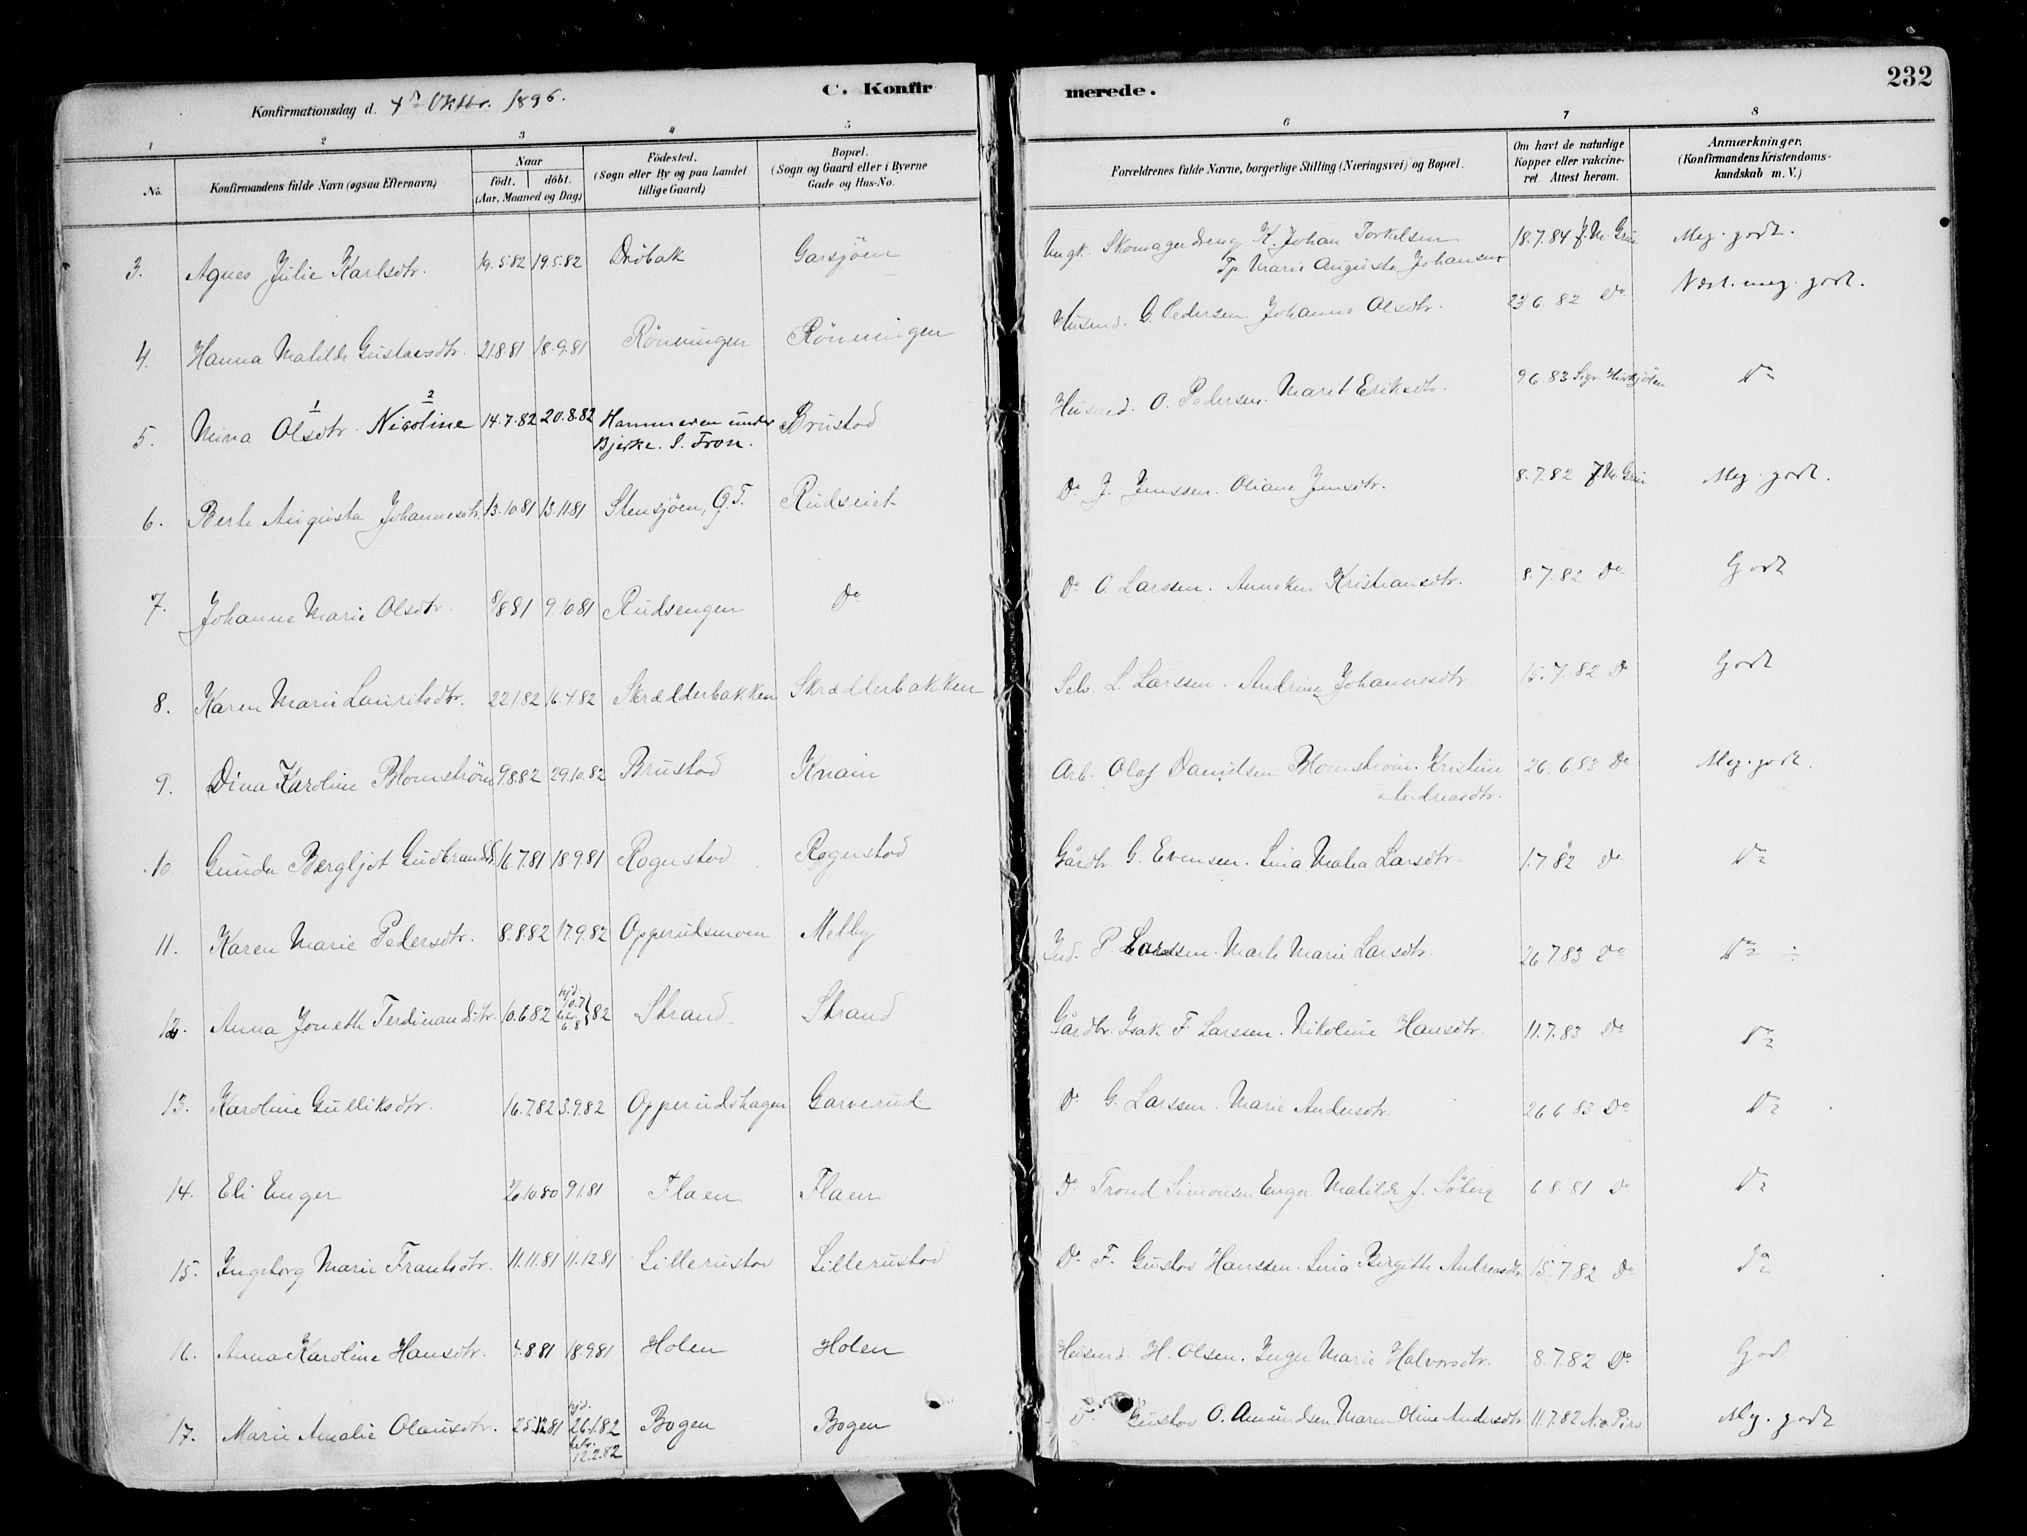 232
C. Konfirmerede.
Konfirmationsdag d. 4de Oktbr. 1896.
1 2 3 4 5 6 7 8
No.
Konfirmandens fulde Navn (ogsaa Efternavn)
Naar
født. døbt.
(Aar, Maaned og Dag)
Fødested.
(Sogn eller By og paa Landet
tillige Gaard)
Bopæl.
(Sogn og Gaard eller i Byerne
Gade og Hus-No.
Forældrenes fulde Navne, borgerlige Stilling (Næringsvei) og Bopæl.
Om havt de naturlige
Kopper eller vakcine-
ret Attest herom.
Anmærkninger.
(Konfirmandens Kristendoms-
kundskab m. V.)
3. Agnes Julie Karlsdtr. 19.5.82 19.5.82 Drøbak Garsjøen Ungk. Skomagerdreng K. Johan Torkelsen 18.7.84 Meg. godt.
Tp. Marie Augusta Johansen
4. Hanna Matilde Gustavsdtr. 21.8.81 18.9.81 Rønningen Rønningen Husmd. G. Pedersen. Johanne Olsdtr. 23.6.82 Do Næst. meg. godt.
1 2
5. Mina Olsdtr. Nicoline 14.7.82 20.8.82 Hammeren under Brustad Husmd. O. Pedersen. Marit Eriksdtr. 9.6.83 Do
Bjerke. S. Fron.
6. Berte Augusta Johannesdtr. 13.10.81 13.11.81 Stensjøen, G.T. Rudseiet Do J. Jenssen. Oliane Jensdtr. 8.7.82 Meg. godt.
7. Johanne Marie Olsdtr. 8/8 81 9.10.81 Rudsengen Do Do O. Larssen. Anneken Kristiansdtr. 8.7.82 Do Godt
8. Karen Marie Lauritsdtr. 22.1.82 16.4.82 Skrædderbakken Skrædderbakken Selv. L. Larssen. Andrine Johannesdtr. 15.7.82 Do Godt
9. Dina Karoline Blomstrøm 9.8.82 29.10.82 Brustad Knain Arb. Olaf Danielsen Blomstrøm. Kristine 26.6.83 Do Meg. godt.
Andreasdtr.
10. Gunda Bergljot Gudbrandsdtr. 16.7.81 18.9.81 Rogerstad Rogerstad Gårdbr. G. Evensen. Lina Malea Larsdtr. 1.7.82 Do Do
11. Karen Marie Pedersdtr. 8.8.82 17.9.82 Opperudsmoen Melby Ind. P. Larssen. Marte Marie Larsdtr. 26.7.83 Do Do ÷
12. Anna Jonette Ferdinandsdtr. 10.6.82 hjd. 10.7 bekr. 6.8 } 82 Strand Strand Gårdbr. Isak F. Larssen. Nikoline Hansdtr. 11.7.83 Do Do
13. Karoline Gulliksdtr. 16.7.82 3.9.82 Opperudshagen Garverud Do G. Larssen. Marie Andersdtr. 26.6.83 Do Do
14. Eli Enger 26.10.80 9.1.81 Flaen Flaen Do Trond Simonsen Enger. Matilde f. Søberg 6.8.81 Do Do
15. Ingeborg Marie Frantsdtr. 11.11.81 11.12.81 Lillerustad Lillerustad Do F. Gustav Hanssen. Lina Birgitte Andreasdtr. 15.7.82 Do Do
16. Anna Karoline Hansdtr. 4.8.81 18.9.81 Holen Holen Husmd. H. Olsen. Inger Marie Halvorsdtr. 8.7.82 Do Godt
17. Marie Amalie Olausdtr. 25.12.81 hjd. 26.1.82 bekr. 12.2.82 Bogen Bogen Do Gustav O. Amundsen Maren Oline Andersdtr. 11.7.82 Meg. godt